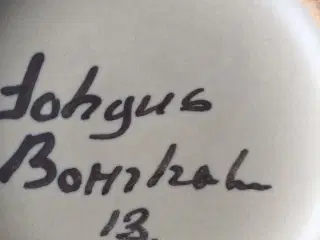 Johgus
Bornholm
13.